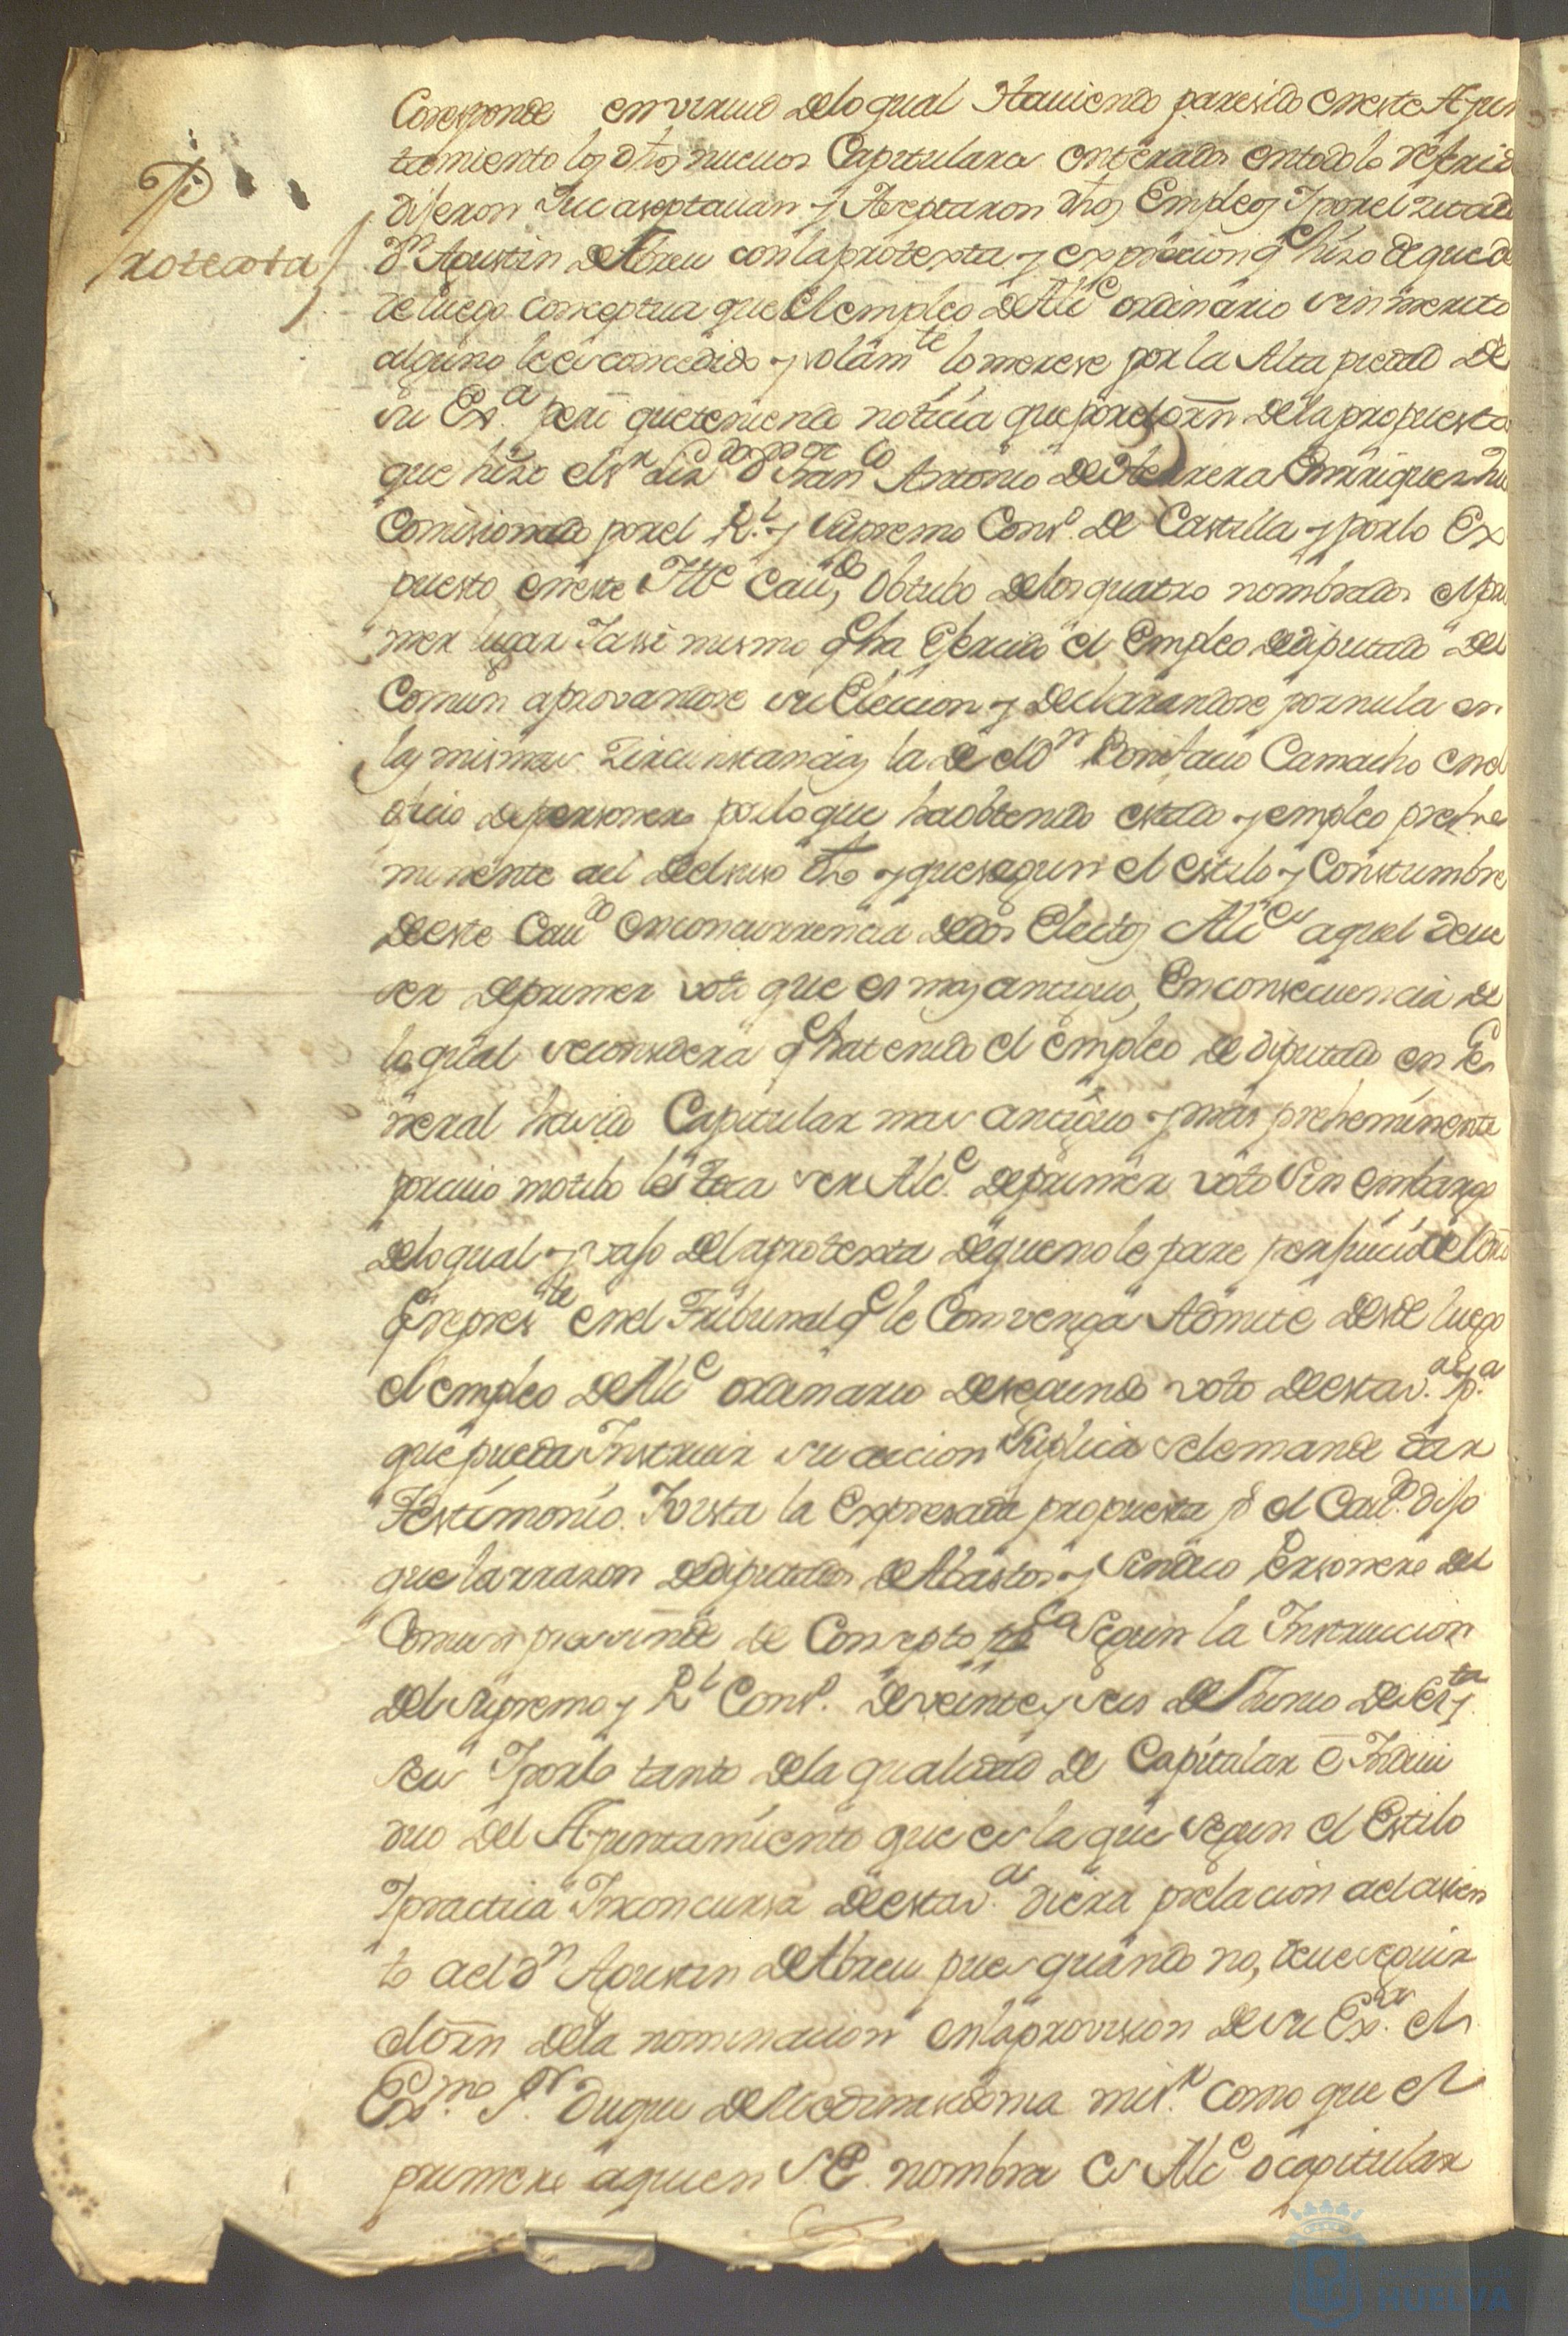 Protexta
Coresponde en virtud delo qual Hauiendo paresido eneste Ayun
tamiento los dhos nueuos Capitulares enterados entodo lo referido
dijeron Que aseptauan y Aceptaron dhos Empleos Y por el zitado
Dn Agustin de Abreu con la protexta y exprecion qe hiso de que des
de luego conceptua que el empleo de Alce ordinario sin merito
alguno le es concedido y solamte lo merese por la Alta piedad de
su Exa pero que teniendo noticia que por el orn dela propuesta
que hizo el sr Lizdo Dn Franco Antonio de Herrera Enrriquez Jues
Comisionado por el Rl y Supremo Consº de Castilla y por lo Ex
puesto eneste Ille Caudo, Obtubo delos quatro nombrados el pri
mer lugar Y assi mismo qe ha Ejercido el Empleo de diputado del
Comun aprovandose su Eleccion y declarandose por nula en
las mismas Zircunstancias la de el Dn Bonifacio Camacho en el
oficio de personero por lo que ha obtenido estado y empleo prehe
minente al del suso dho y que segun el estilo y Construmbre
de este Caudo en concurrencia de dos Electos Alces aquel deue
ser de primer voto que es mas antiguo, En consecuencia de
lo qual se considera qe ha tenido el empleo de diputado en Ge
neral ha sido Capitular mas antiguo y mas preheminente
por cuio motibo le toca ser Alce de primer voto Sin embargo
delo qual y vajo dela protexta de que no le pare perjuicio
enel Tribunal qe le Convenga Admite desde luego
el empleo de Alce ordinario de segundo voto de esta va Ypa
que pueda Instruir su accion Suplica se le mande dar
Testimonio. Y vista la Expresada propuesta pr el Caudo dijo
que la rrason de diputados de Abastos y Sindico Personero del
Comun prescinde de Consepto Segun la Instruccion
del Supremo y Rl Consº de veinte y seis de Junio de Seta y
seis Y por lo tanto dela qualidad de Capitular è Indiui
duo del Ayuntamiento que es la que segun el Estilo
Y practica Inconcursa de esta va diera prelacion al asien
to al dn Agustin de Abreu pues quando no, deue seguir
el orn dela nominacion en la provision de su Exa el
Exmo Sr Duque de Medinasidonia mi sr como que el
primero a quien S.E. nombra es Alce o capitular
HUELVA